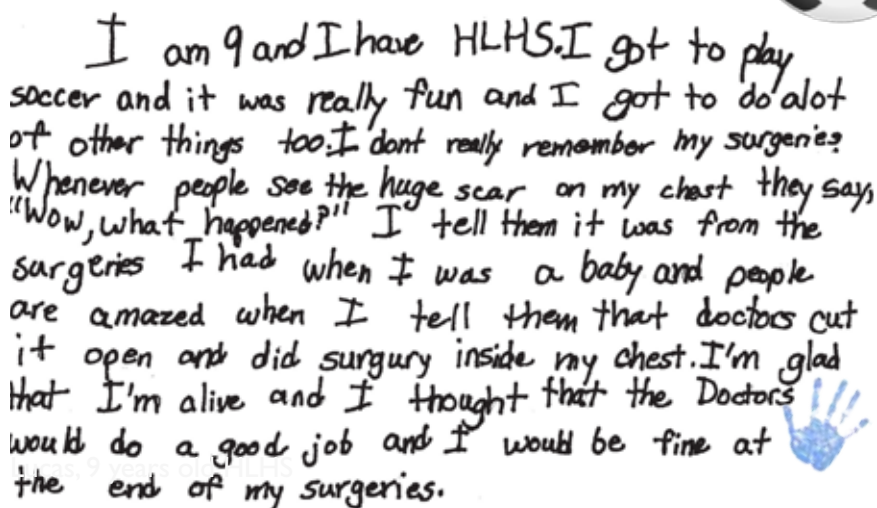 I am 9 and I have HLHS. I got to play
soccer and it was really fun and I got to do alot
of other things too. I dont really remember my surgeries.
Whenever people see the huge scar on my chest they say,
"Wow, what happened?" I tell them it was from the
surgeries I had when I was a baby and people
are amazed when I tell them that doctors cut
it open and did surgury inside my chest. I'm glad
that I'm alive and I thought that the Doctors
would do a good job and I would be fine at
Lucas, 9 years old, HLHS
the end of my surgeries.